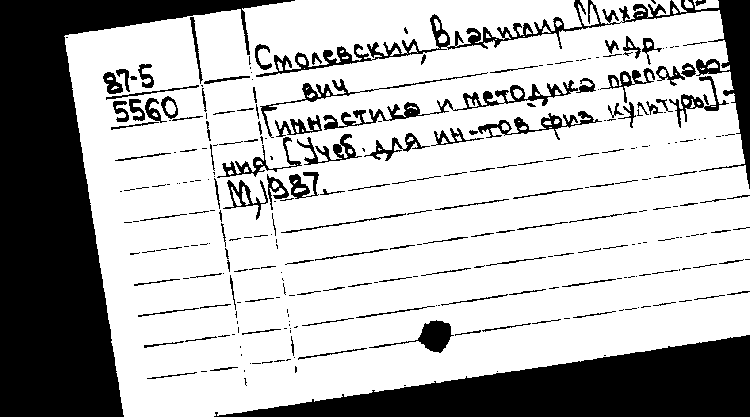 Смолевский, Владимир Михайло-
вич и др.
87-5
5560
Гимнастика и методика преподава-
ния. [Учеб. для ин-тов физ. культуры].-
М, 1987.